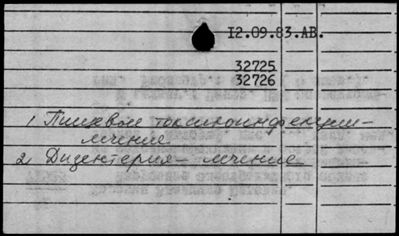 12.09.83.АВ.
32725
32726
1 Пищевые токсикоинфекции –
лечение
2. Дизентерия – лечение